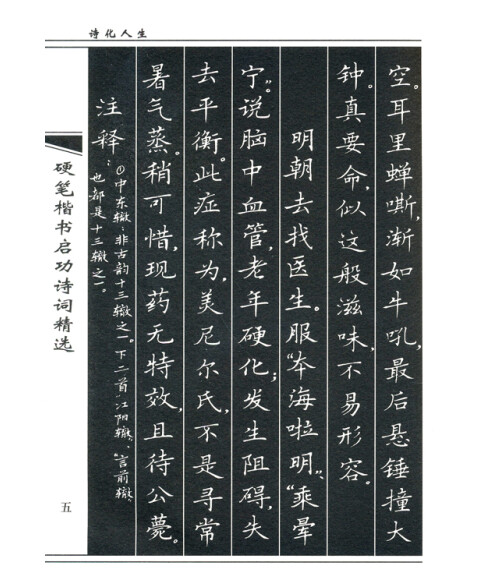 诗化人生
空。耳里蝉嘶，渐如牛吼，最后悬锤撞大
钟。真要命，似这般滋味，不易形容。
明朝去找医生。服“本海啦明”、“乘晕
宁”。说脑中血管，老年硬化；发生阻碍，失
去平衡。此症称为，美尼尔氏，不是寻常
暑气蒸。稍可惜，现药无特效，且待公薨。
注释：①中东辙：非古韵十三辙之一。下二首“江阳辙”、“言前辙”
也都是十三辙之一。
硬笔楷书启功诗词精选
五